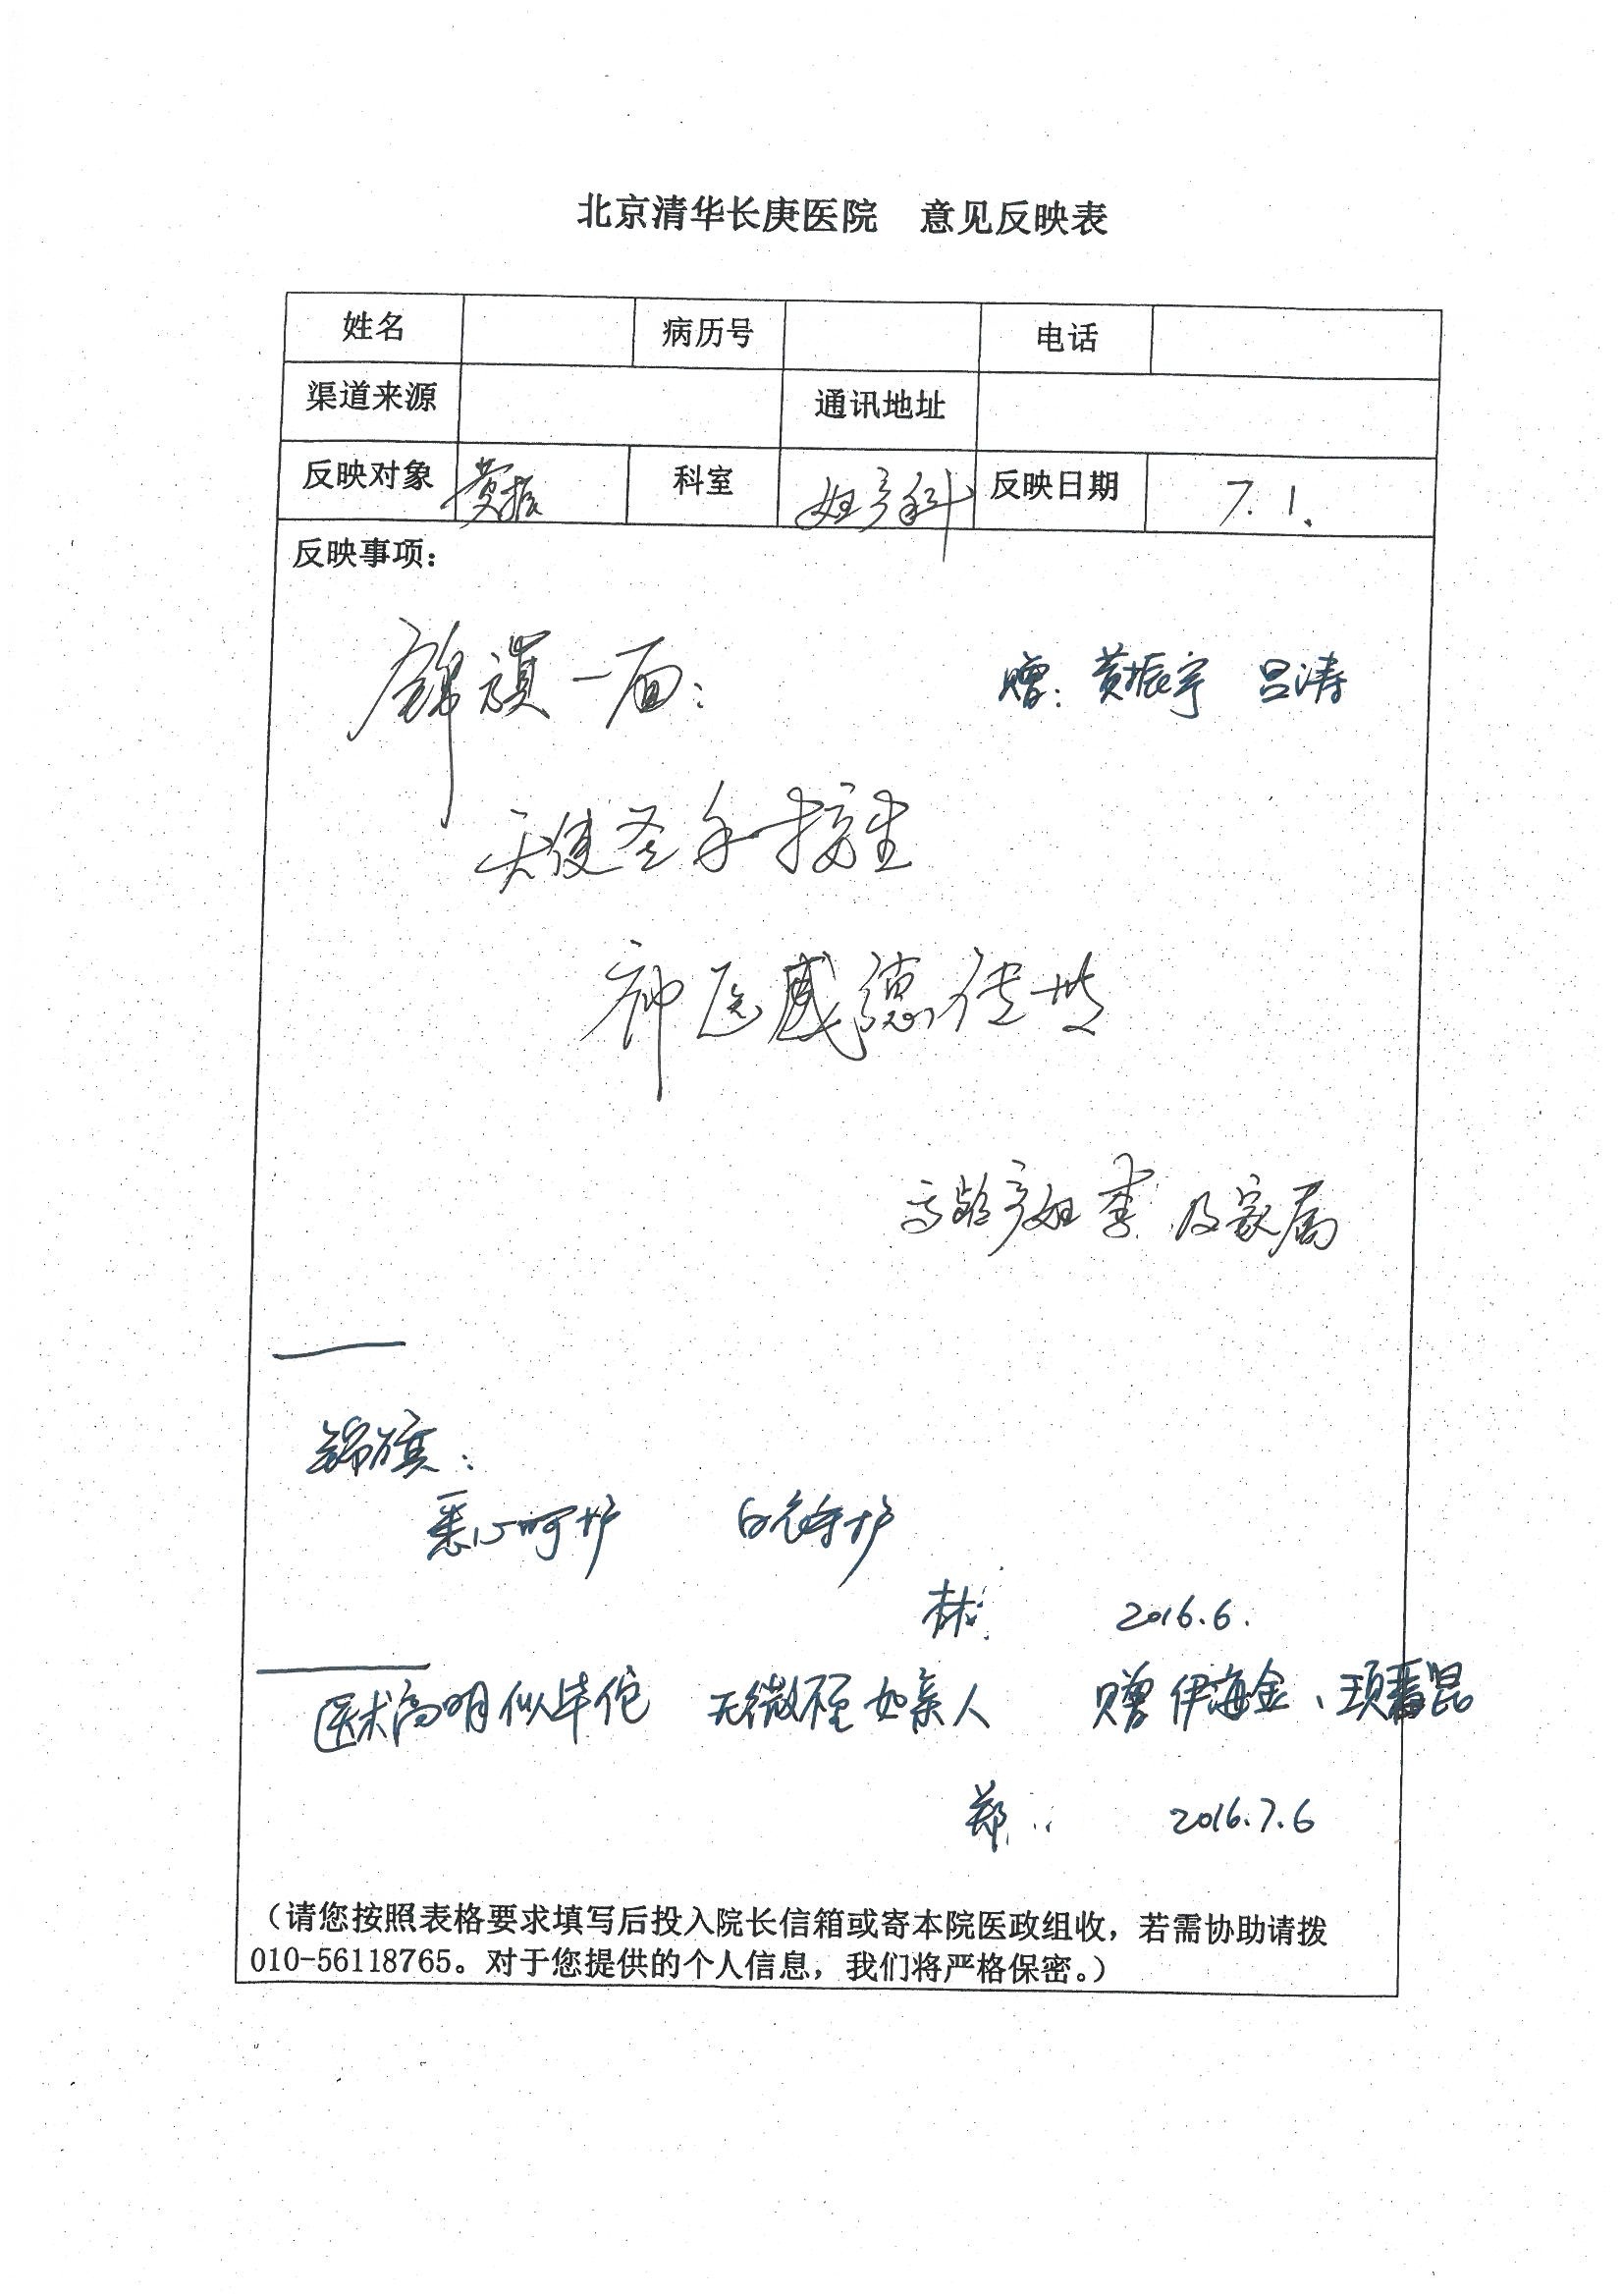 北京清华长庚医院 意见反映表
姓名 病历号 电话
渠道来源 通讯地址
反映对象 黄振 科室 妇产科 反映日期 7.1.
反映事项：
锦旗一面： 赠：黄振宇 吕涛
天使圣手接生
神医感德传世
高龄产妇 李 及家属
锦旗：
悉心呵护 白衣守护
林 2016.6.
医术高明似华佗 无微不至如亲人 赠 伊海金、项番昆
郑 2016.7.6
（请您按照表格要求填写后投入院长信箱或寄本院医政组收，若需协助请拨
010-56118765。对于您提供的个人信息，我们将严格保密。）